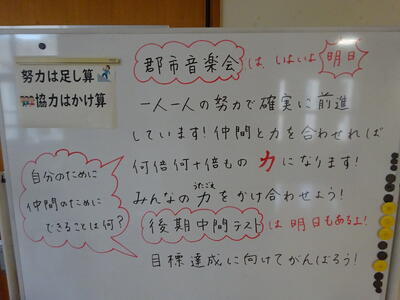 努力は足し算
協力はかけ算
郡市音楽会は、いよいよ明日
一人一人の努力で確実に前進
しています!仲間と力を合わせれば
何倍何十倍もの力になります!
みんなの力をかけ合わせよう!
うたごえ
後期中間テストは明日もあるよ!
目標達成に向けてがんばろう!
自分のために
仲間のために
できることは何?